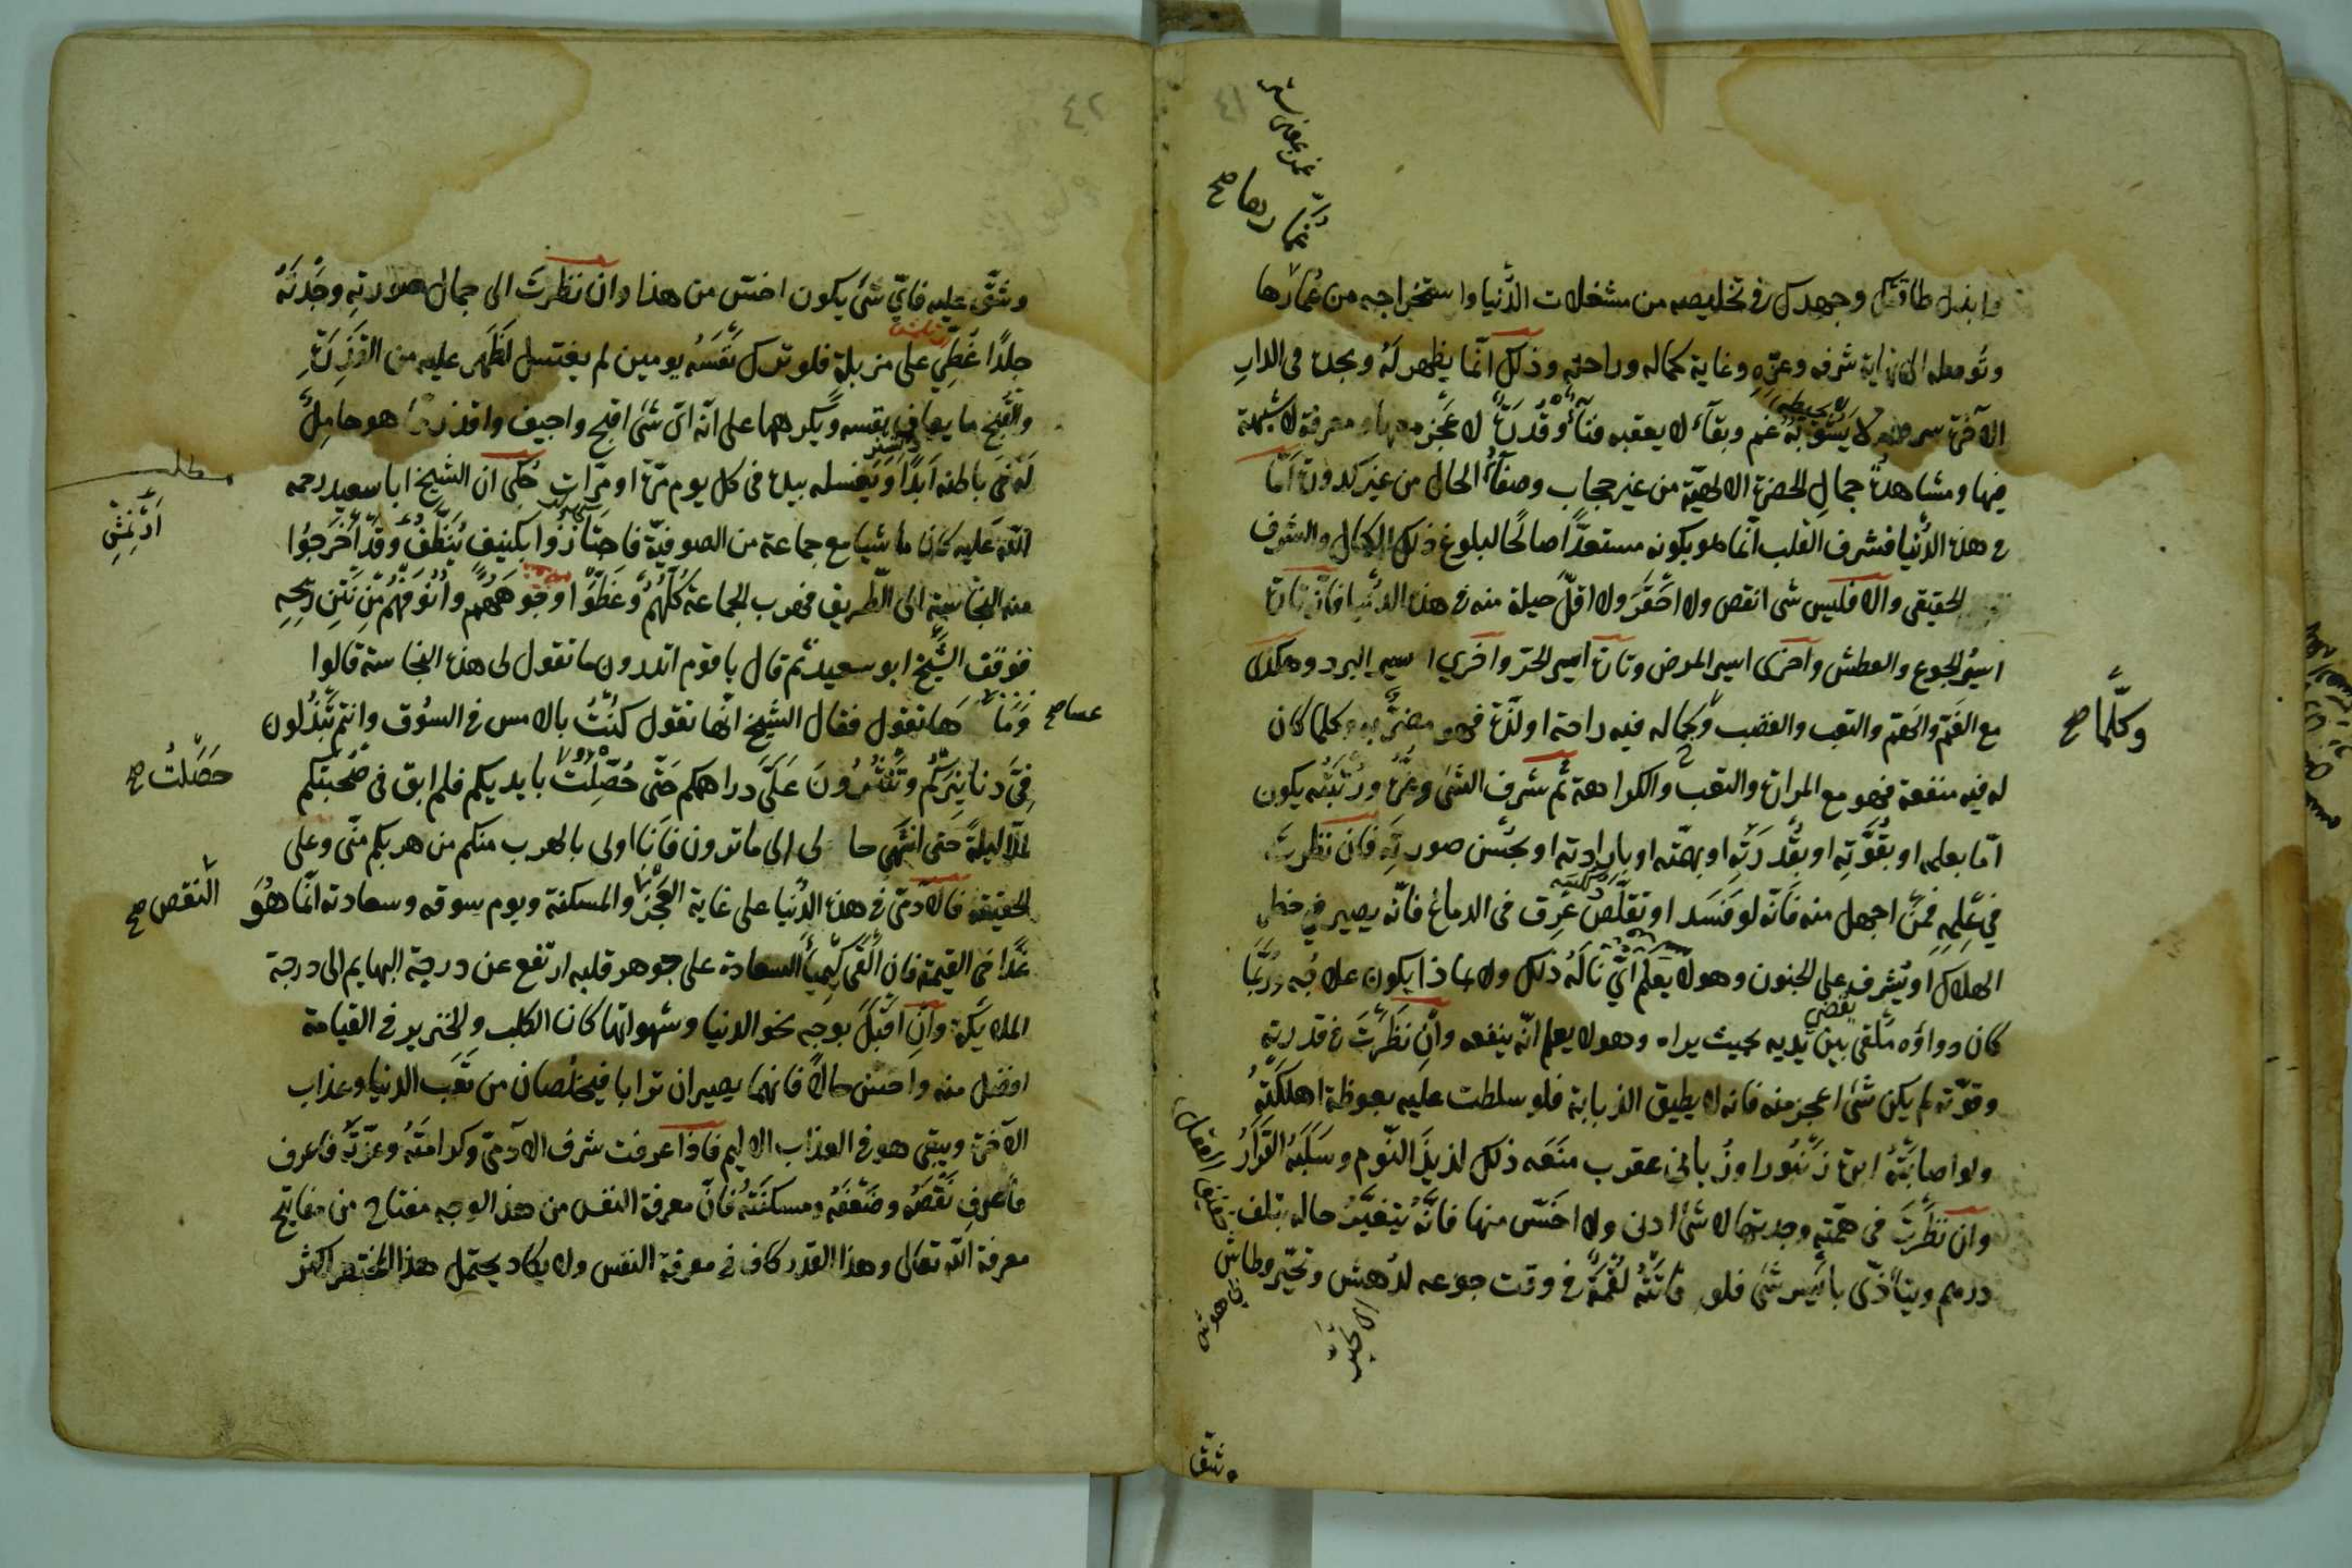 ٤١
وابذل طاقتك وجهدك فى تخليصه من مشغلات الدنيا واستخراجه من غمارها
وتوصله الى نهاية شرفه وعزّه وغاية كماله وراحته وذلك انّما يظهر له ويجده فى الدار
الآخرة لا يشوبه غم وبقآء لا يعقبه فنآء وقدرة لا عجز معها ومعرفة لا شبهة
فيها ومشاهدة جمال الحضرة الالهيّة من غير حجاب وصفآء الحال من غير كدورة امّا
فى هذه الدّنيا فشرف القلب انّما هو بكونه مستعدّا صالحًا لبلوغ ذلك الكمال والشرف
الحقيقى والا فليس شى انقص ولا احقر ولا اقلّ حيلة منه فى هذه الدنيا فانّه تارة
اسير الجوع والعطش واخرى اسير المرض وتارة اسير الحرّ واخرى اسير البرد وهكذا
مع الغم والهم والتعب والغضب وكلما له فيه راحة او لذّة فهو مضرّ به وكلما كان
له فيه منفعة فهو مع المرارة والتعب والكراهة ثم شرف الشى وعزّه ورتبته يكون
امّا بعلمه او بقوّته او بقدرته او بهمّته او بارادته او بحسن صورته فان نظرت
فى علمه فمن اجهل منه فانّه لو فسد او تقلّص عرق فى الدماغ فانّه يصير فى خطر
الهلاك او يشرف على الجنون وهو لا يعلم اىّ ناله ذلك ولا بماذا يكون علاجه وربّما
كان دواؤه ملقى بين يديه بحيث يراه وهو لا يعلم انّه ينفعه وان نظرت فى قدرته
وقوّته لم يكن شئ اعجز منه فانه لا يطيق الذبابة فلو سلطت عليه بعوظة اهلكته
ولو اصابته ابرة زنبور او زبانى عقرب منعه ذلك لذيذ النّوم وسلبه القرار
وان نظرت فى همّته وجدتها لا شئ ادنى ولا اخسّ منها فانّه يتغيّر حاله بتلف
درهم ويتأذّى بأيسر شئ فلو فاتته لقمة فى وقت جوعه لدهش وتحيّر وطاش
وكلّما صح
ربما صح
٤٢
وشقّ عليه فاىّ شئ يكون اخسّ من هذا وان نظرت الى جمال صورته وجدته
جلدًا غطّى على مزبلة فلو ترك نفسه يومين لم يغتسل لظهر عليه من القذرة
والقبح ما يعاف نفسه ويكرهها على انّه اىّ شئ اقبح واجيف واقذر ممّا هو حامل
له فى باطنه ابدًا ويغسله بيده فى كل يوم مرّة او مرّات حكى ان الشيخ ابا سعيد رحمه
الله عليه كان ماشيا مع جماعة من الصوفيّة فاجتازوا بكنيف ينظّف وقد اخرجوا
منه النجاسة الى الطّريق فهرب الجماعة كلّهم وغطّوا وجوههم وانوفهم من نتن ريحه
فوقف الشّيخ ابو سعيد ثم قال يا قوم اتدرون ما تقول لى هذه النجاسة قالوا
وما عساها تقول فقال الشيخ انّها تقول كنت بالامس فى السّوق وانتم تبذلون
فىّ دنانيركم وتنثرون علىّ دراهمكم حتّى حصّلت بايديكم فلم ابق فى صحبتكم
الّا ليلة حتى انتهى حالى الى ما ترون فانا اولى بالهرب منكم من هربكم منّى وعلى
الحقيقة فالآدمىّ فى هذه الدّنيا على غاية العجز والمسكنة ويوم سوقه وسعادته انّما هو
غدًا فى القيمة فان القى كيمياء السعادة على جوهر قلبه ارتفع عن درجة البهايم الى درجة
الملايكة وان اقبل بوجه نحو الدنيا وشهواتها كان الكلب والخنزير فى القيامة
افضل منه واحسن حالا فانهما يصيران ترابا فيخلصان من تعب الدنيا وعذاب
الآخرة ويبقى هو فى العذاب الاليم فاذا عرفت شرف الآدمىّ وكرامته وعزّته فاعرف
فاعرف نقصه وضعفه ومسكنته فانّ معرفة النفس من هذا الوجه مفتاح من مفاتيح
معرفة الله تعالى وهذا القدر كاف فى معرفة النفس ولا يكاد يحتمل هذا المختصر اكثر
مطلب
عسا صح
حصّلت صح
النقص صح